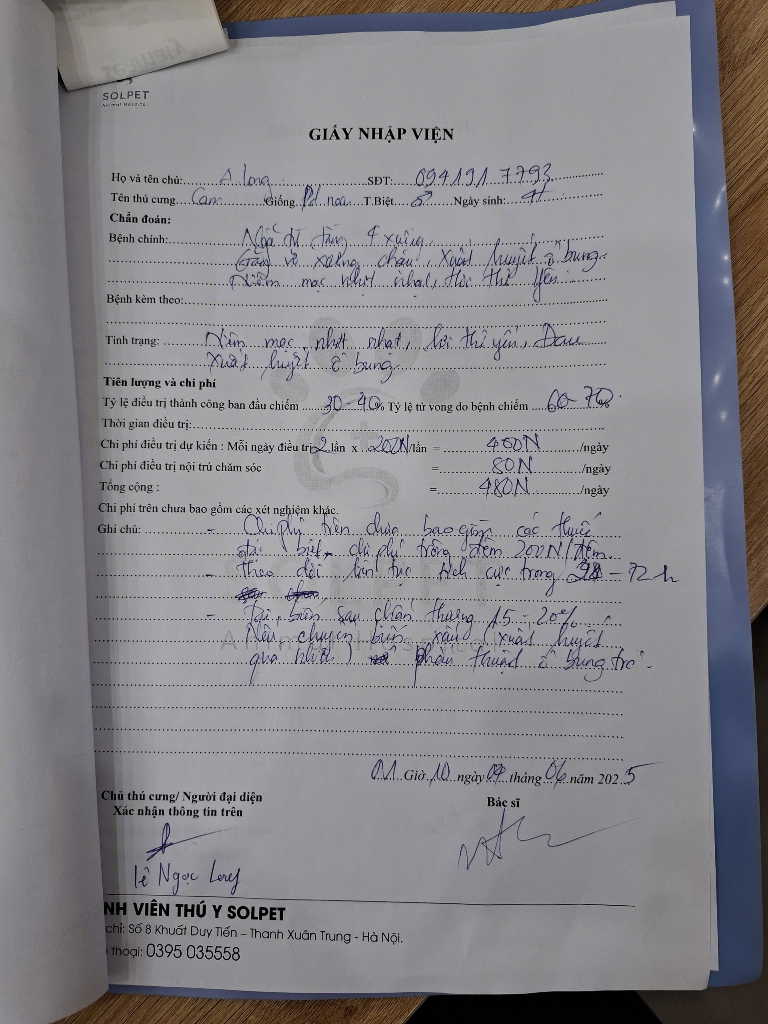 SOLPET
Animal Hospital
GIẤY NHẬP VIỆN
Họ và tên chủ: A Long SĐT: 094191 7793
Tên thú cưng Cam Giống T.Biệt ♂ Ngày sinh:
Chẩn đoán:
Bệnh chính: Ngã từ tầng 4 xuống
Gãy vỡ xương chậu, xuất huyết ổ bụng
Niêm mạc nhợt nhạt, hơi thở yếu
Bệnh kèm theo:
Tình trạng: Niêm mạc nhợt nhạt, hơi thở yếu, Đau
xuất huyết ổ bụng
Tiên lượng và chi phí
Tỷ lệ điều trị thành công ban đầu chiếm 30-40% Tỷ lệ tử vong do bệnh chiếm 60-70%
Thời gian điều trị:
Chi phí điều trị dự kiến : Mỗi ngày điều trị 2 lần x 200N/lần = 400N /ngày
Chi phí điều trị nội trú chăm sóc = 80N /ngày
Tổng cộng : = 480N /ngày
Chi phí trên chưa bao gồm các xét nghiệm khác.
Ghi chú: - Chi phí trên chưa bao gồm các thuốc
đặc biệt, chi phí trông đêm 200N/đêm
- Theo dõi liên tục tích cực trong - 72h
- Tai biến sau chấn thương 15-20%
Nếu chuyển biến xấu (xuất huyết
quá nhiều) phẫu thuật ổ bụng
01 Giờ 10 ngày 04 tháng 06 năm 2025
Chủ thú cưng/ Người đại diện
Xác nhận thông tin trên
Bác sĩ
Lê Ngọc Long
NH VIÊN THÚ Y SOLPET
chỉ: Số 8 Khuất Duy Tiến – Thanh Xuân Trung - Hà Nội.
thoại: 0395 035558